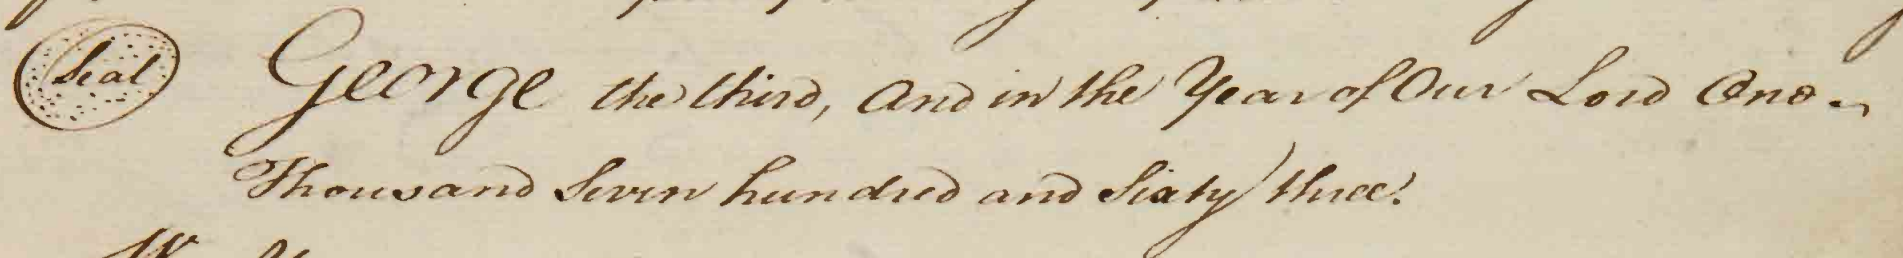 Seal George the third, And in the Year of Our Lord One
Thousand Seven hundred and Sixty three.